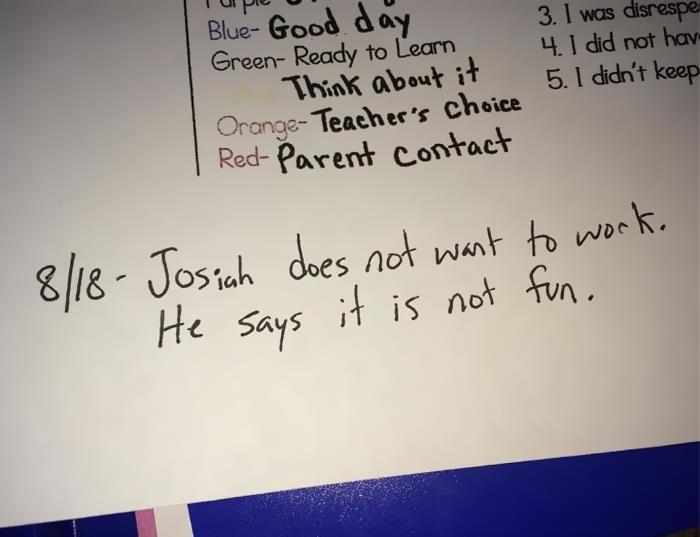 Purple
Blue- Good day
Green- Ready to Learn
Think about it
Orange- Teacher's choice
Red- Parent contact
3. I was
4. I did not
5. I didn't keep
8/18- Josiah does not want to work.
He says it is not fun.